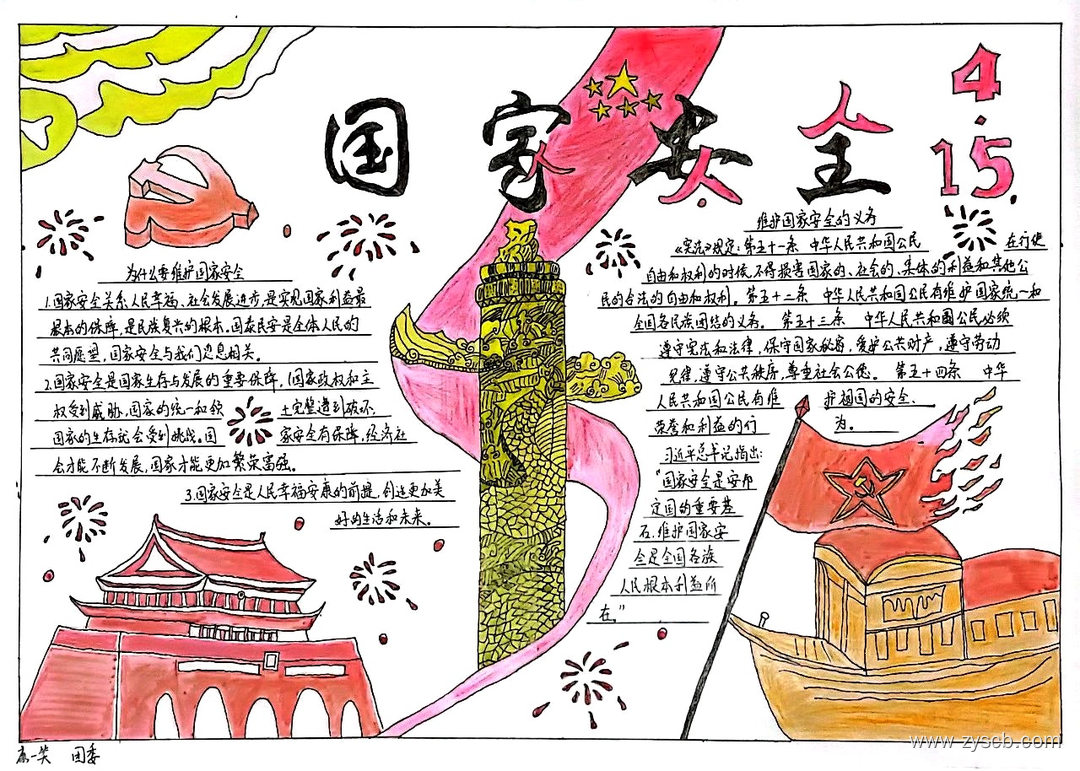 国家安全
4.15
为什么要维护国家安全
1.国家安全关系人民幸福、社会发展进步,是实现国家利益最
根本的保障,是民族复兴的根本。国泰民安是全体人民的
共同愿望,国家安全与我们息息相关。
2.国家安全是国家生存与发展的重要保障,国家政权和主
权受到威胁,国家的统一和领土完整遭到破坏,
国家的生存就会受到挑战。国家安全有保障,经济社
会才能不断发展,国家才能更加繁荣富强。
3.国家安全是人民幸福安康的前提,创造更加美
好的生活和未来。
维护国家安全的义务
《宪法》规定:第五十一条 中华人民共和国公民在行使
自由和权利的时候,不得损害国家的、社会的、集体的利益和其他公
民的合法的自由和权利。第五十二条 中华人民共和国公民有维护国家统一和
全国各民族团结的义务。第五十三条 中华人民共和国公民必须
遵守宪法和法律,保守国家秘密,爱护公共财产,遵守劳动
纪律,遵守公共秩序,尊重社会公德。第五十四条 中华
人民共和国公民有维护祖国的安全、
荣誉和利益的行为。
习近平总书记指出:
"国家安全是安邦
定国的重要基
石,维护国家安
全是全国各族
人民根本利益所
在。"
高一 团委
www.zyscb.com